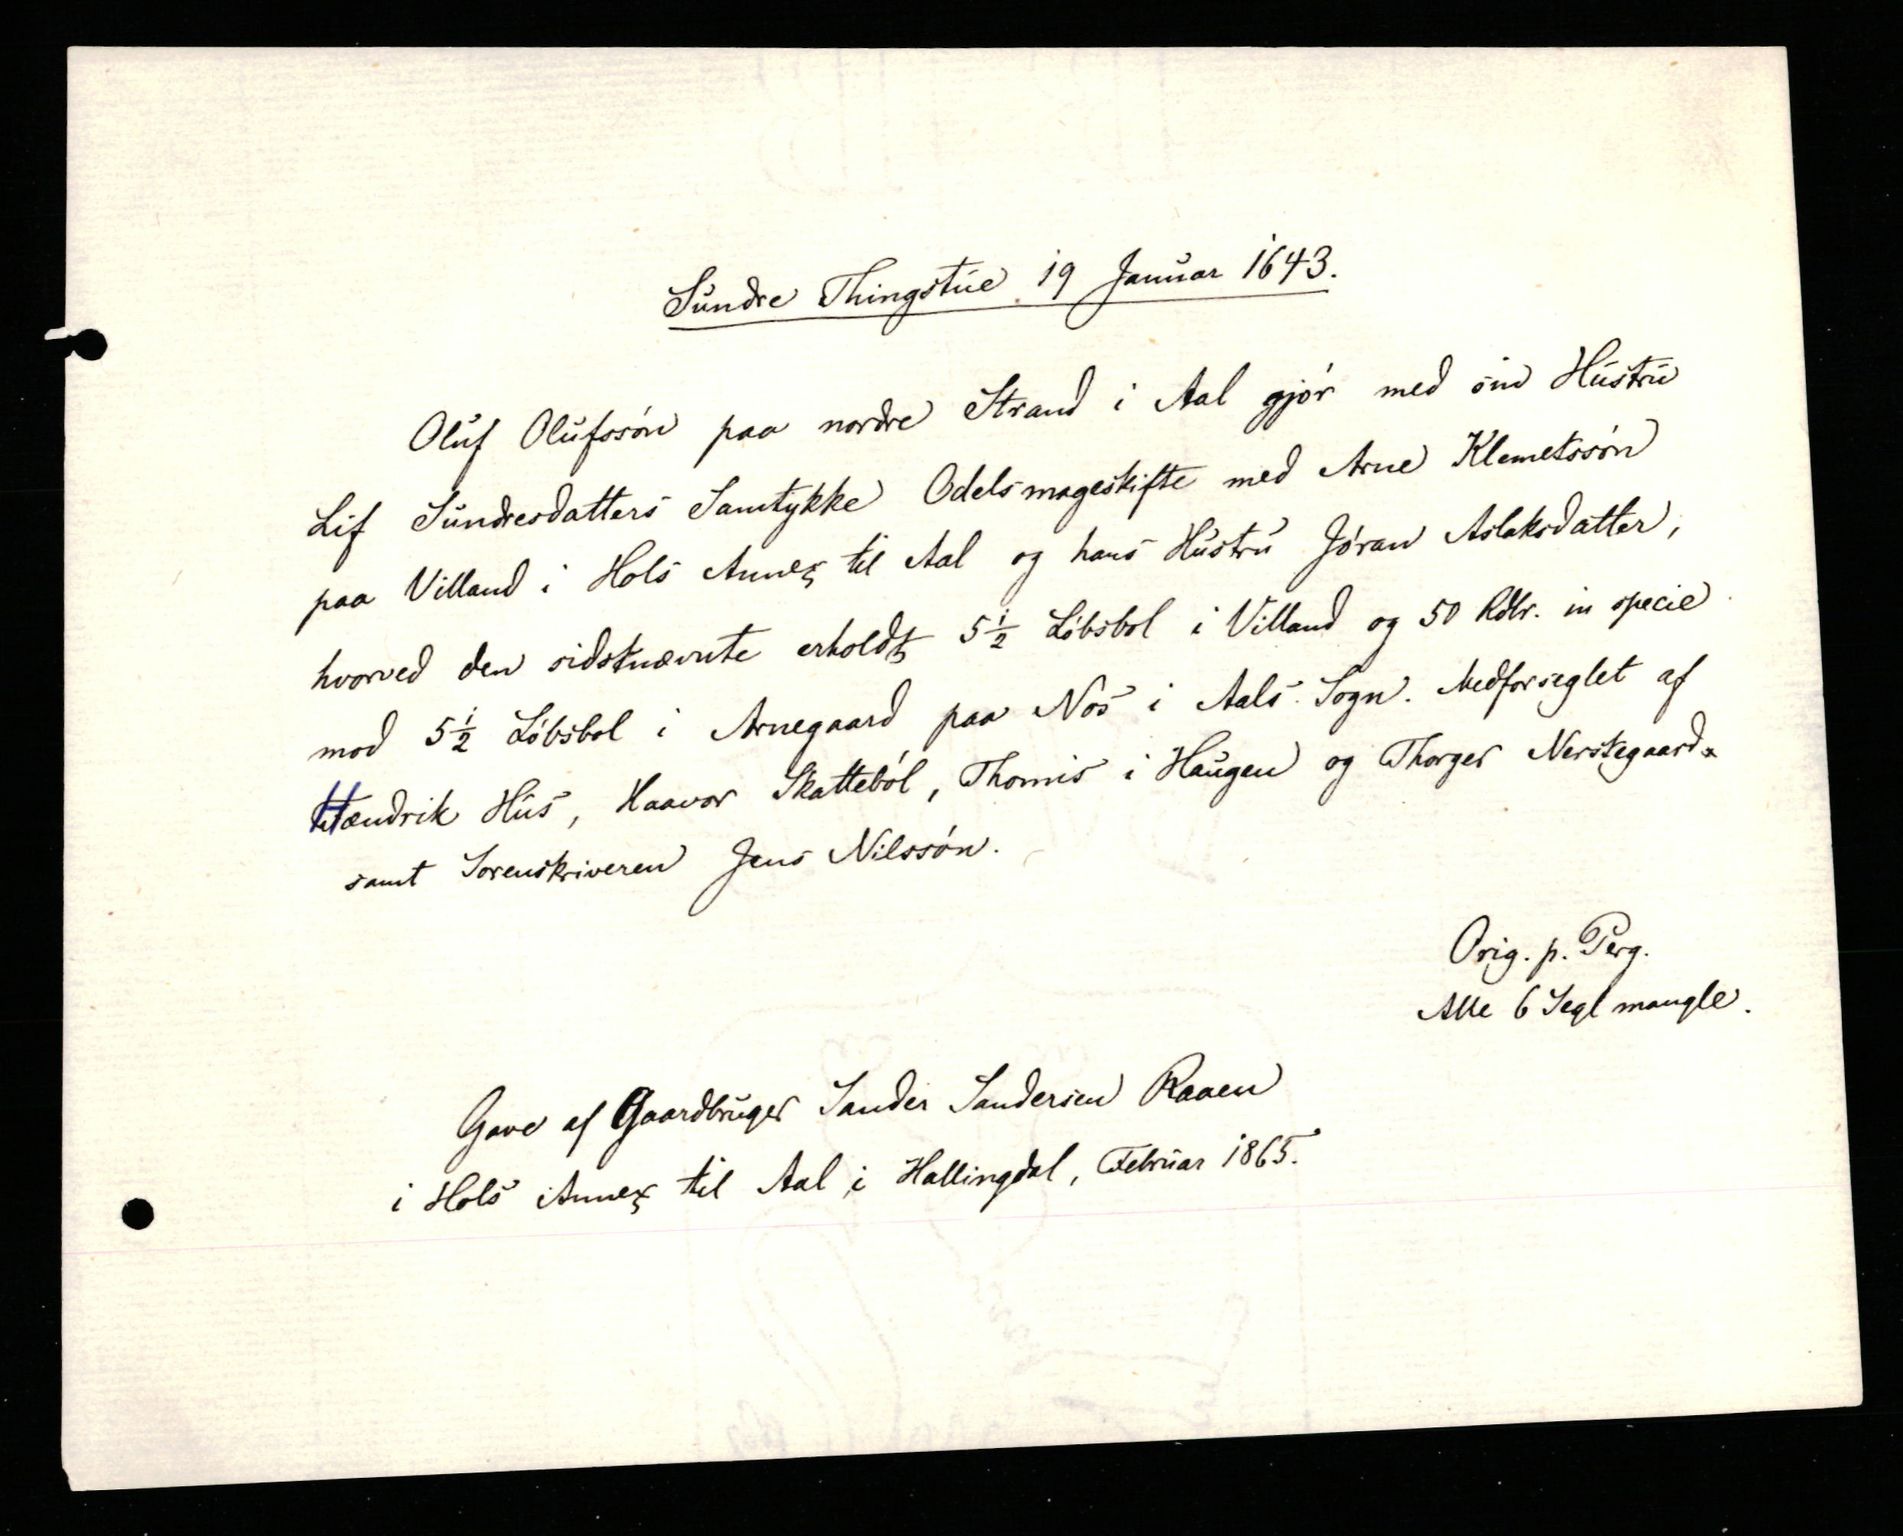 Sundre Thingstue 19 Januar 1643.
Oluf Olufssøn paa nordre Strand i Aal gjør med sin Hustru
Lif Sundresdatters Samtykke Odelsmageskifte med Arne Klemetssøn
paa Villand i Hols Annex til Aal og hans Hustru Jøran Aslaksdatter,
hvorved den sidstnævnte erholdt 5½ Løbsbol i Villand og 50 Rdlr. in specie
mod 5½ Løbsbol i Arnegaard paa Nos i Aals Sogn. Medforseglet af
Hændrik Hus, Haavor Skattebøl, Thomis i Haugen og Thorger Nerstegaard
samt Sorenskriveren Jens Nilssøn.
Orig. p. Perg.
Alle 6 Segl mangle.
Gave af Gaardbruger Sander Sandersen Raaen
i Hols Annex til Aal i Hallingdal, Februar 1865.